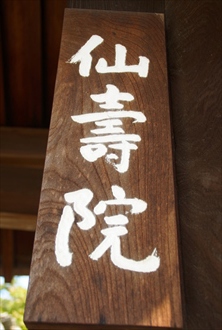 仙壽院